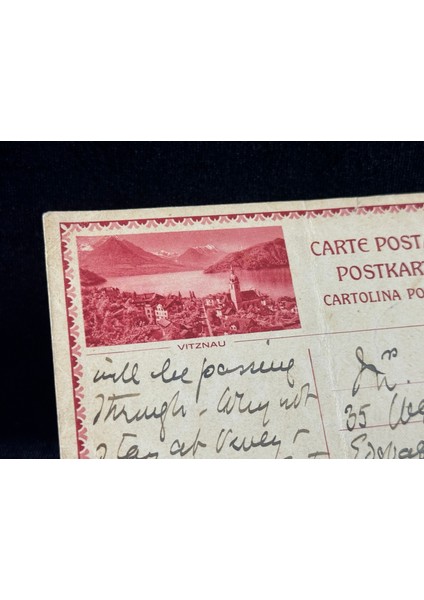 CARTE POSTA
POSTKART
CARTOLINA PO
VITZNAU
will be passing
through - Why not
stay at Vevey -
35